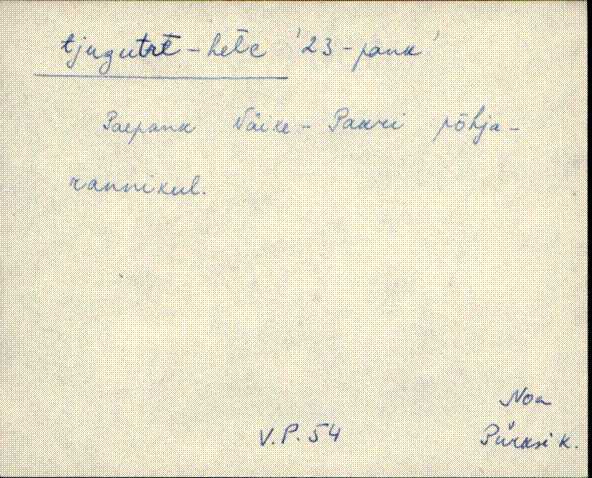 tjugutrē-hete '23-pank'
Paepank Väike-Pakri põhja-
rannikul.
Noa
V.P.54 Pürksi k.